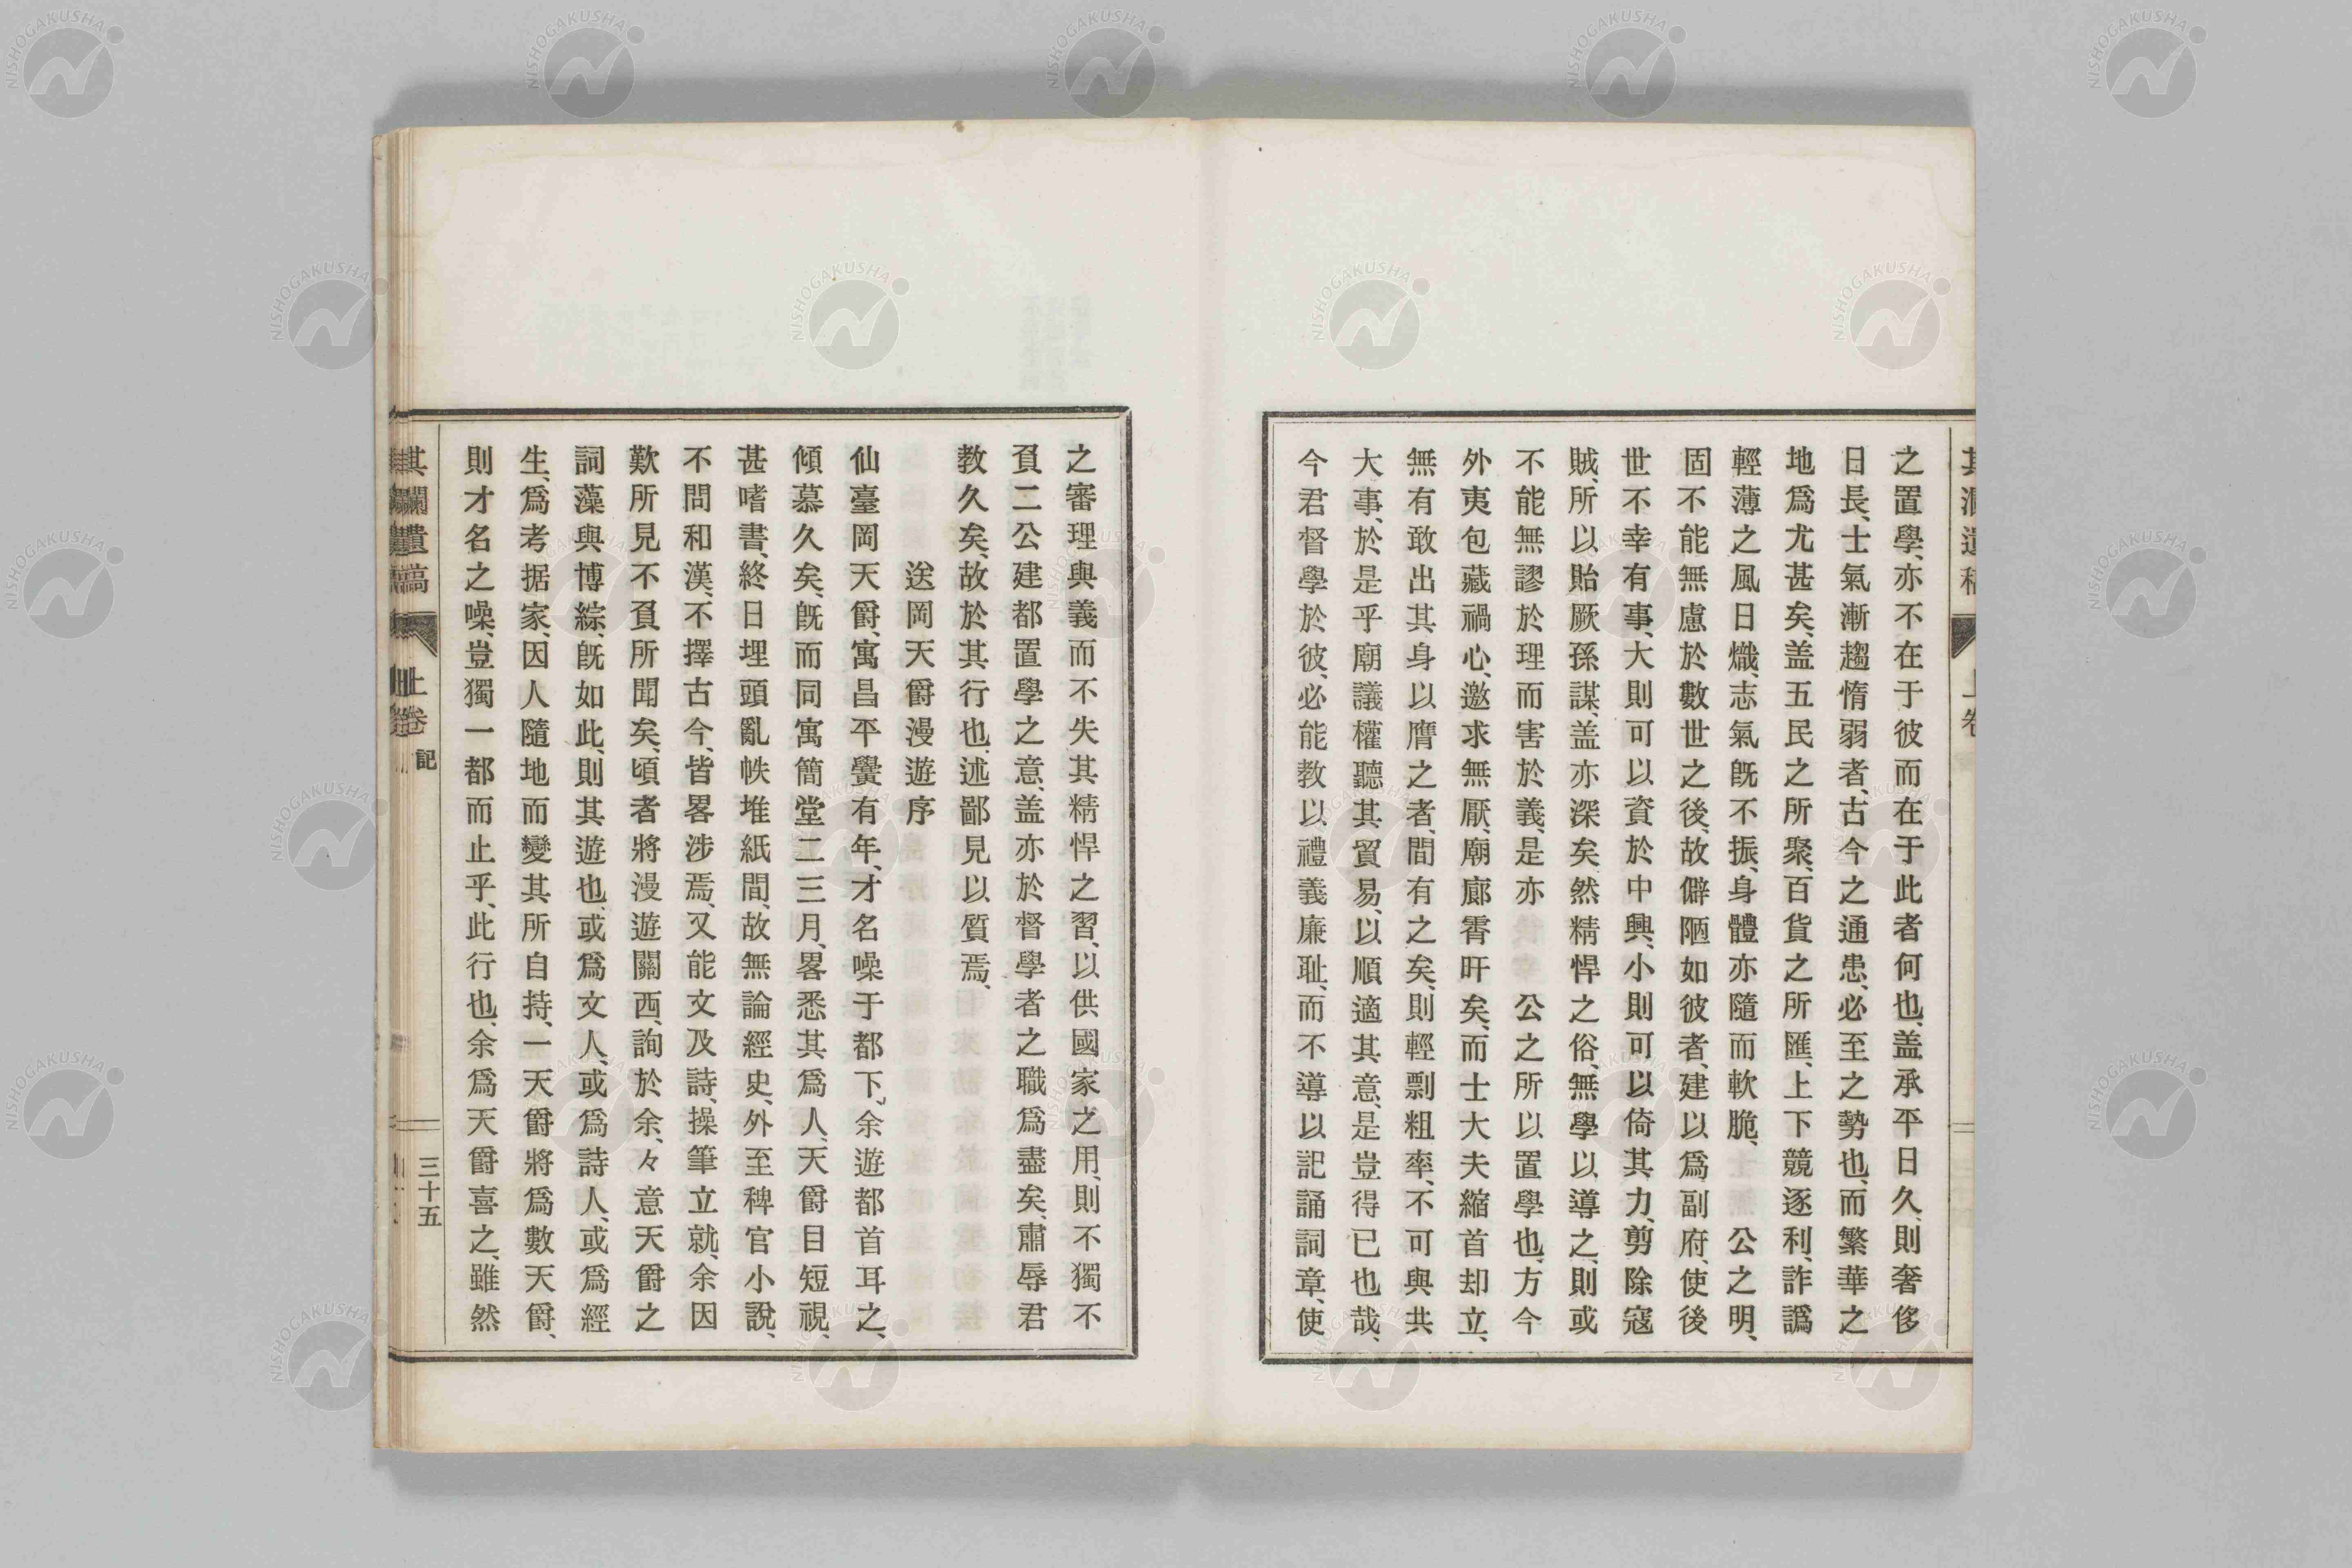 之置學、亦不在于彼而在于此者何也、盖承平日久、則奢侈
日長、士氣漸趨惰弱者、古今之通患、必至之勢也、而繁華之
地爲尤甚矣、盖五民之所聚、百貨之所匯、上下競逐利、詐譌
輕薄之風日熾、志氣旣不振、身體亦隨而軟脆、公之明、
固不能無慮於數世之後、故僻陋如彼者、建以爲副府、使後
世不幸有事、大則可以資於中興、小則可以倚其力、剪除寇
賊、所以貽厥孫謀、盖亦深矣、然精悍之俗、無學以導之、則或
不能無謬於理而害於義、是亦 公之所以置學也、方今
外夷包藏禍心、邀求無厭、廟廊霄旰矣、而士大夫縮首却立、
無有敢出其身以膺之者、間有之矣、則輕剽粗率、不可與共
大事、於是乎廟議權聽其貿易、以順適其意、是豈得已也哉、
今君督學於彼、必能教以禮義廉耻、而不導以記誦詞章、使
之審理與義而不失其精悍之習、以供國家之用、則不獨不
負二公建都置學之意、盖亦於督學者之職爲盡矣、肅辱君
教久矣、故於其行也、述鄙見以質焉、
送岡天爵漫遊序
仙臺岡天爵、寓昌平黌有年、才名噪于都下、余遊都首耳之、
傾慕久矣、旣而同寓簡堂二三月、畧悉其爲人、天爵目短視、
甚嗜書、終日埋頭亂帙堆紙間、故無論經史、外至稗官小說、
不問和漢、不擇古今、皆畧涉焉、又能文及詩、操筆立就、余因
歎所見不負所聞矣、頃者將漫遊關西、詢於余、々意天爵之
詞藻與博綜、旣如此、則其遊也、或爲文人、或爲詩人、或爲經
生、爲考据家、因人隨地而變其所自持、一天爵將爲數天爵、
則才名之噪、豈獨一都而止乎、此行也、余爲天爵喜之、雖然
其瀾遺稿 上卷 記 三十五